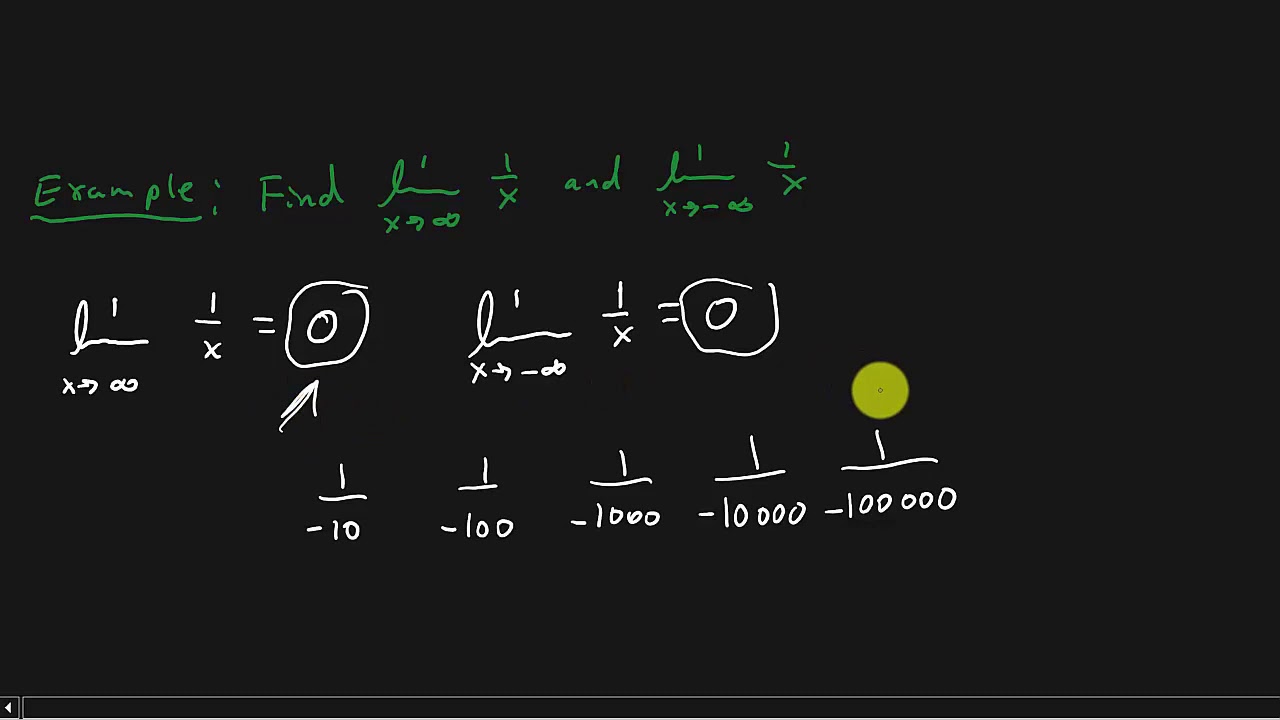 Example: Find lim x→∞ 1/x and lim x→-∞ 1/x
lim x→∞ 1/x = 0 lim x→-∞ 1/x = 0
1/-10 1/-100 1/-1000 1/-10000 1/-100000